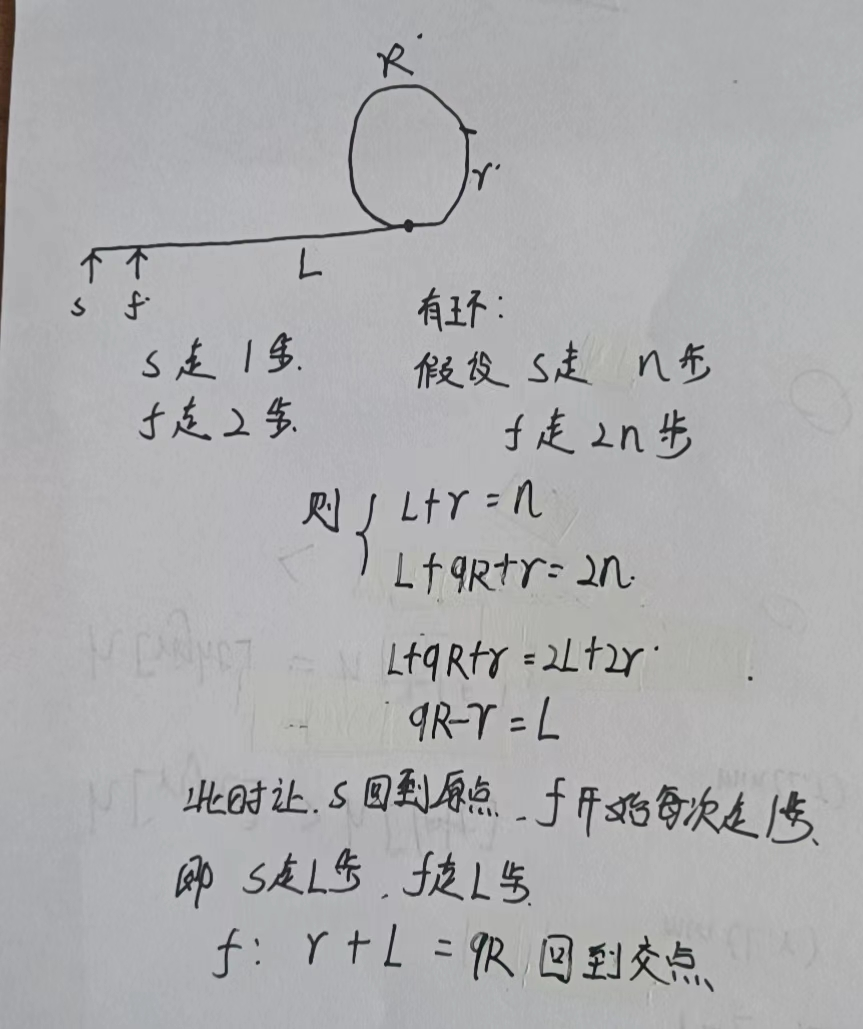 R
r
L
s f
有环:
s走1步.
假设 s走 n步
f走2步.
f走2n步
则 { L+r=n
L+qR+r=2n.
L+qR+r=2L+2r
qR-r=L
此时让s回到原点,f开始每次走1步、
即 s走L步,f走L步.
f: r+L=qR 回到交点、